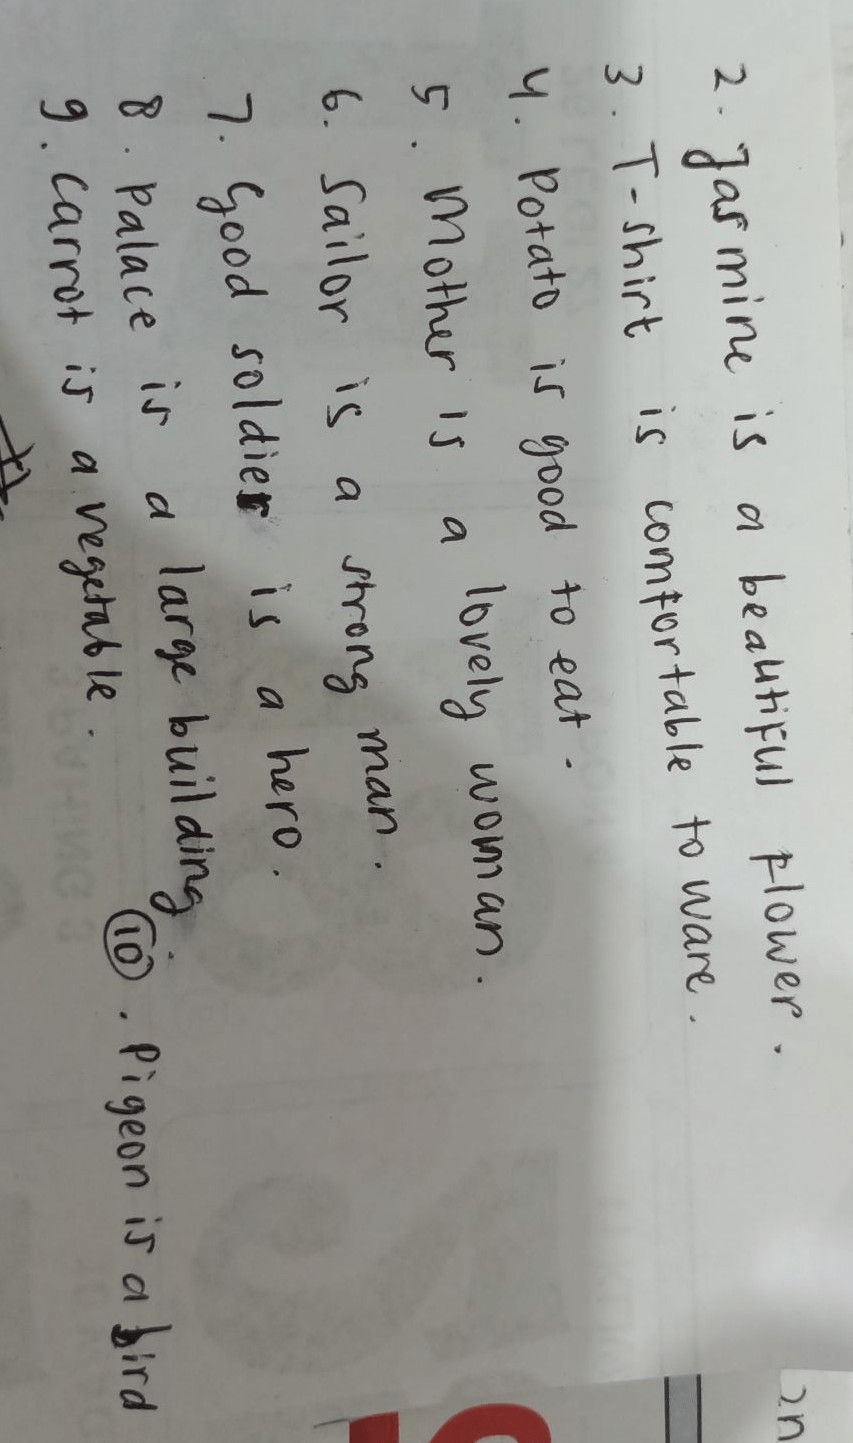 2. Jasmine is a beautiful flower.
3. T-shirt is comfortable to ware.
4. Potato is good to eat.
5. Mother is a lovely woman.
6. Sailor is a strong man.
7. Good soldier is a hero.
8. Palace is a large building.
9. Carrot is a vegetable.
10. Pigeon is a bird